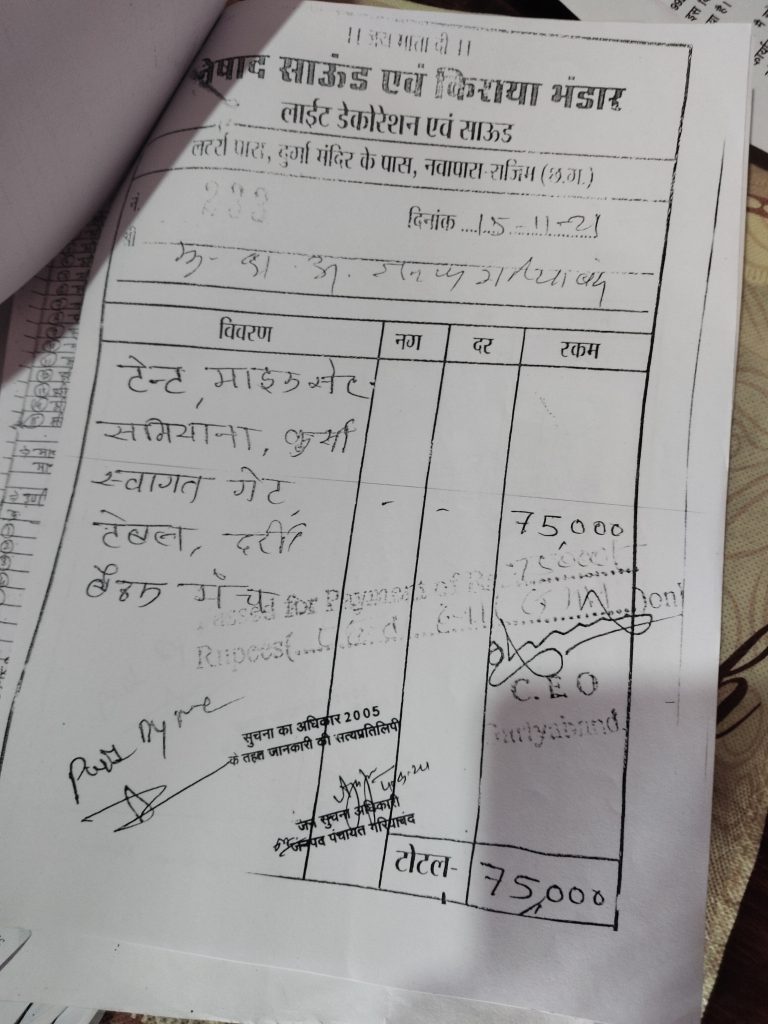 ।। जय माता दी ।।
साऊंड एवं किराया भंडार
लाईट डेकोरेशन एवं साऊड
पास, दुर्गा मंदिर के पास, नवापारा-राजिम (छ.ग.)
नं. 233 दिनांक 15-11-21
श्री
विवरण नग दर रकम
टेन्ट, माइक सेट
समियाना, कुर्सी
स्वागत गेट,
75,000
टेबल, दरी
बैठक मंच
Passed for Payment of Rs. 75000/-
Rupees(
C.E.O
Gariyaband.
सुचना का अधिकार 2005
के तहत जानकारी की सत्यप्रतिलिपी
जन सुचना अधिकारी
जनपद पंचायत गरियाबंद
टोटल- 75,000